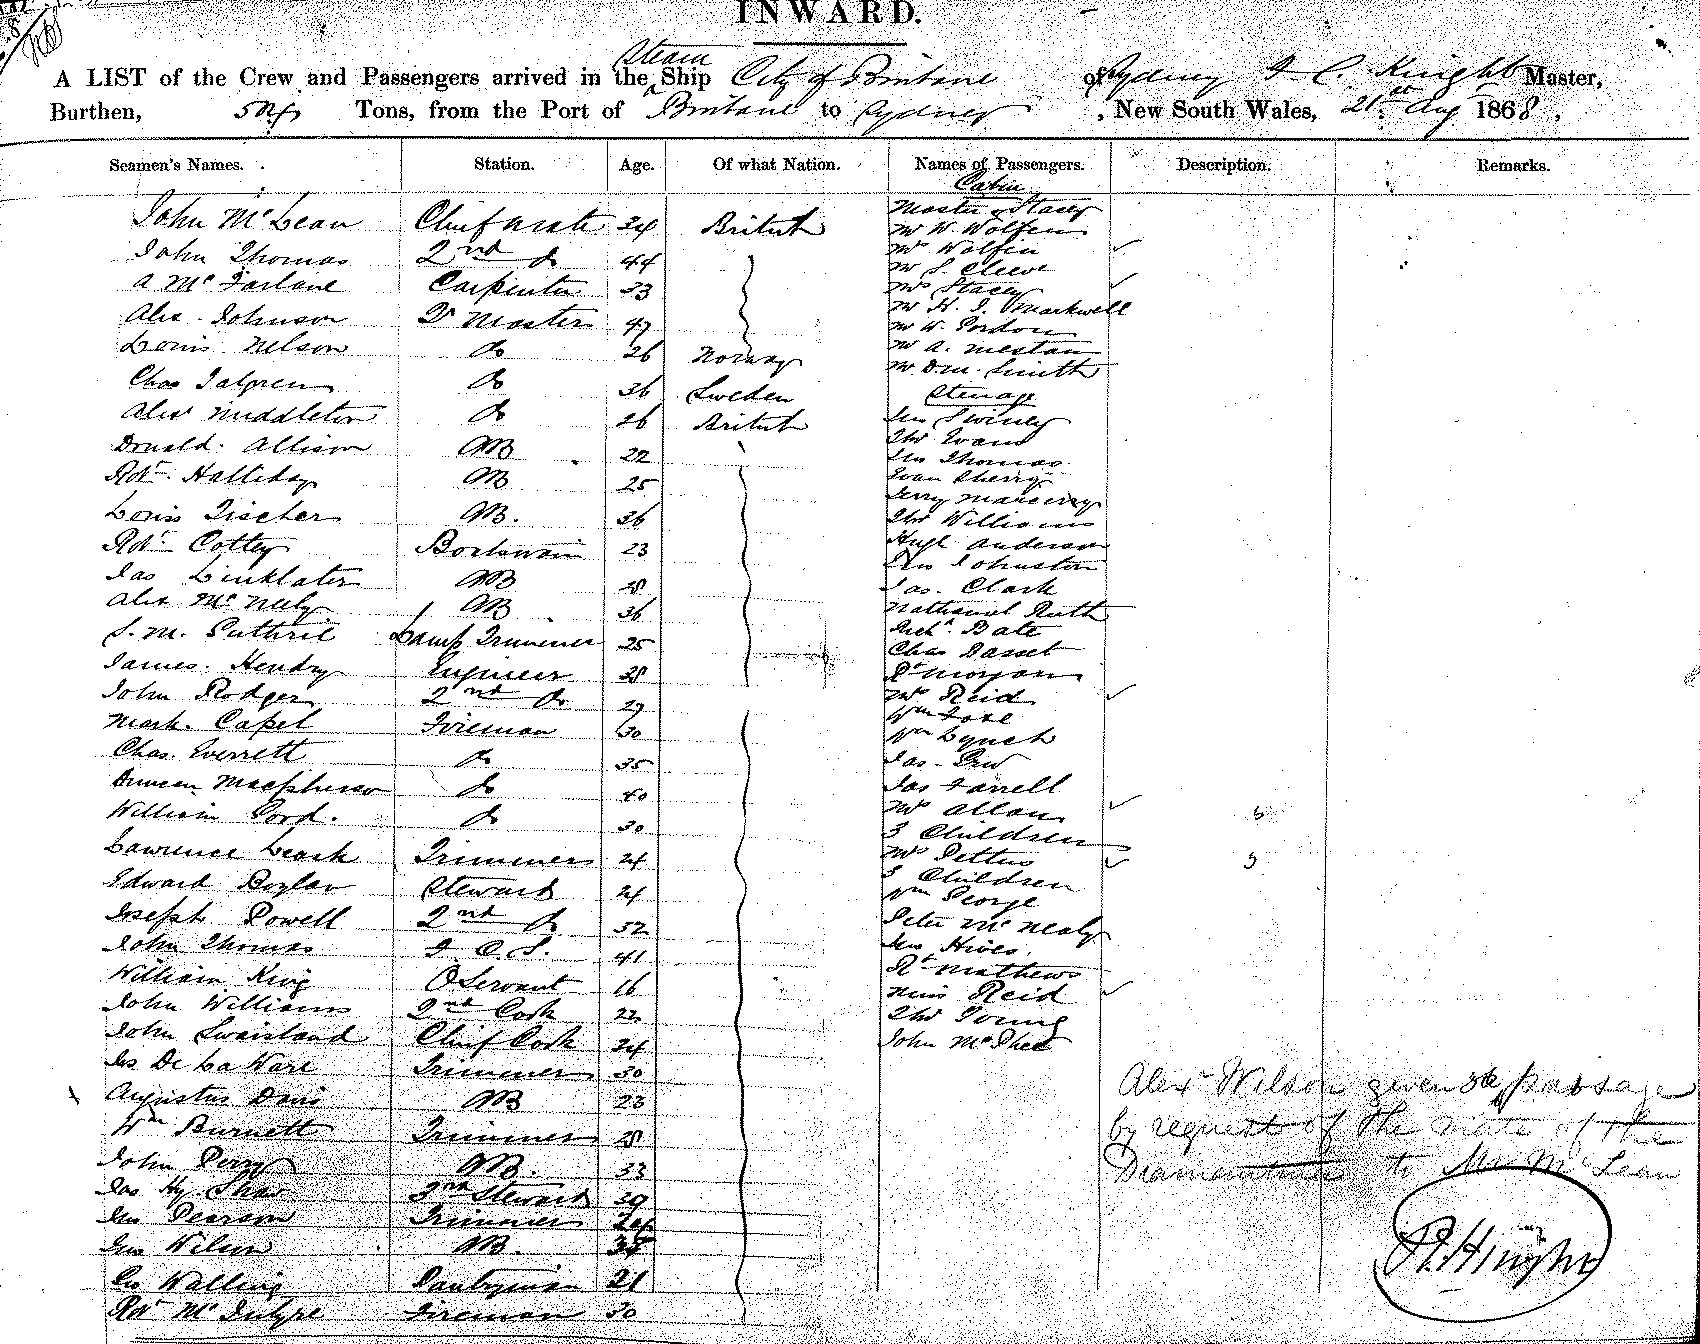 INWARD.
Steam
A LIST of the Crew and Passengers arrived in the Ship City of Brisbane of Sydney I C. Knight Master,
Burthen, 504 Tons, from the Port of Brisbane to Sydney, New South Wales, 21st Aug 1868.
Seamen's Names. Station. Age. Of what Nation. Names of Passengers. Description. Remarks.
Cabin
John McLean Chief Mate 34 British Master Stacey
Mr W. Wolfen
John Thomas 2nd do 44 Mrs Wolfin
Mr S. Cleeve
A McFarlane Carpenter 33 Mrs Stacey
Mr H. J. Markwell
Alex. Johnson Qr Master 47 Mr W. Gordon
Louis Nelson do 26 Norway Mr A. Mestan
Mr D.M. Smith
Chas Talgren do 36 Sweden Steerage
Alexr Middleton do 26 British Jno Swiney
Thos Evans
Donald. Allison AB 22 Jno Thomas
Robt. Halliday AB 25 Evan Sherry
Jerry
Louis Fischer AB. 36 Thos Williams
Robt Cottey Boatswain 23 Hugh Anderson
Jno Johnston
Jas Linklater AB 28 Jas. Clark
Alex McNeely AB 36 Nathaniel Ruth
J. M. Guthrie Lamp Trimmer 25 Richd. Bate
Chas Dasset
James. Hendry Engineer 38 Rt Morgan
John Rodger 2nd do 29 Mrs Reid
Wm Foxe
Mark. Capel Fireman 30 Wm Lynch
Chas. Everrett do 35 Jas.
Duncan Macpherson do 40 Jas Farrell
William Ford. do 30 Mrs Allan
3 Children
Lawrence Leask Trimmer 24 Mrs Pettus
3 Children
Edward Boylan Steward 24 Wm George
Joseph Powell 2nd do 32 Peter McNealy
John Thomas F. C. S. 41 Jno Hives.
William King O Servant 16 Rt Mathews
Miss Reid
John Williams 2nd Cook 22 Thos Young
John Swaisland Chief Cook 34 John McPhee
Js De La Hare Trimmer 30
Alexr Wilson given passage
Augustus Davis AB 23
Wm Burnett Trimmer 28 by request of the Mate of the
John Perry AB. 33 Diamantina to Mr McLean
Jas Hy. Shaw 3rd Steward 29
Jno Pearson Trimmer
Jno Wilson AB. 35
Geo Walling Pantryman 21
Robt McIntyre Fireman 30